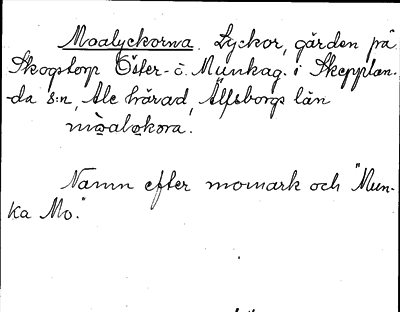 Moalyckorna. Lyckor, gården på
Skogstorp Öster- o. Munkag. i Skepplan-
da s:n, Ale härad, Älfsborgs län
Namn efter momark och "Mun-
ka Mo."